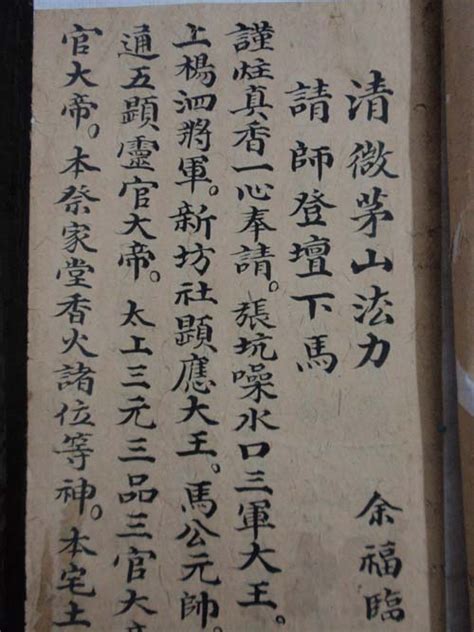 清微茅山法力 余福臨
請師登壇下馬
謹炷真香一心奉請。張坑噪水口三軍大王。
上楊泗將軍。新坊社顕應大王。馬公元帥。
通五顕靈官大帝。太上三元三品三官大
官大帝。本祭家堂香火諸位等神。本宅土